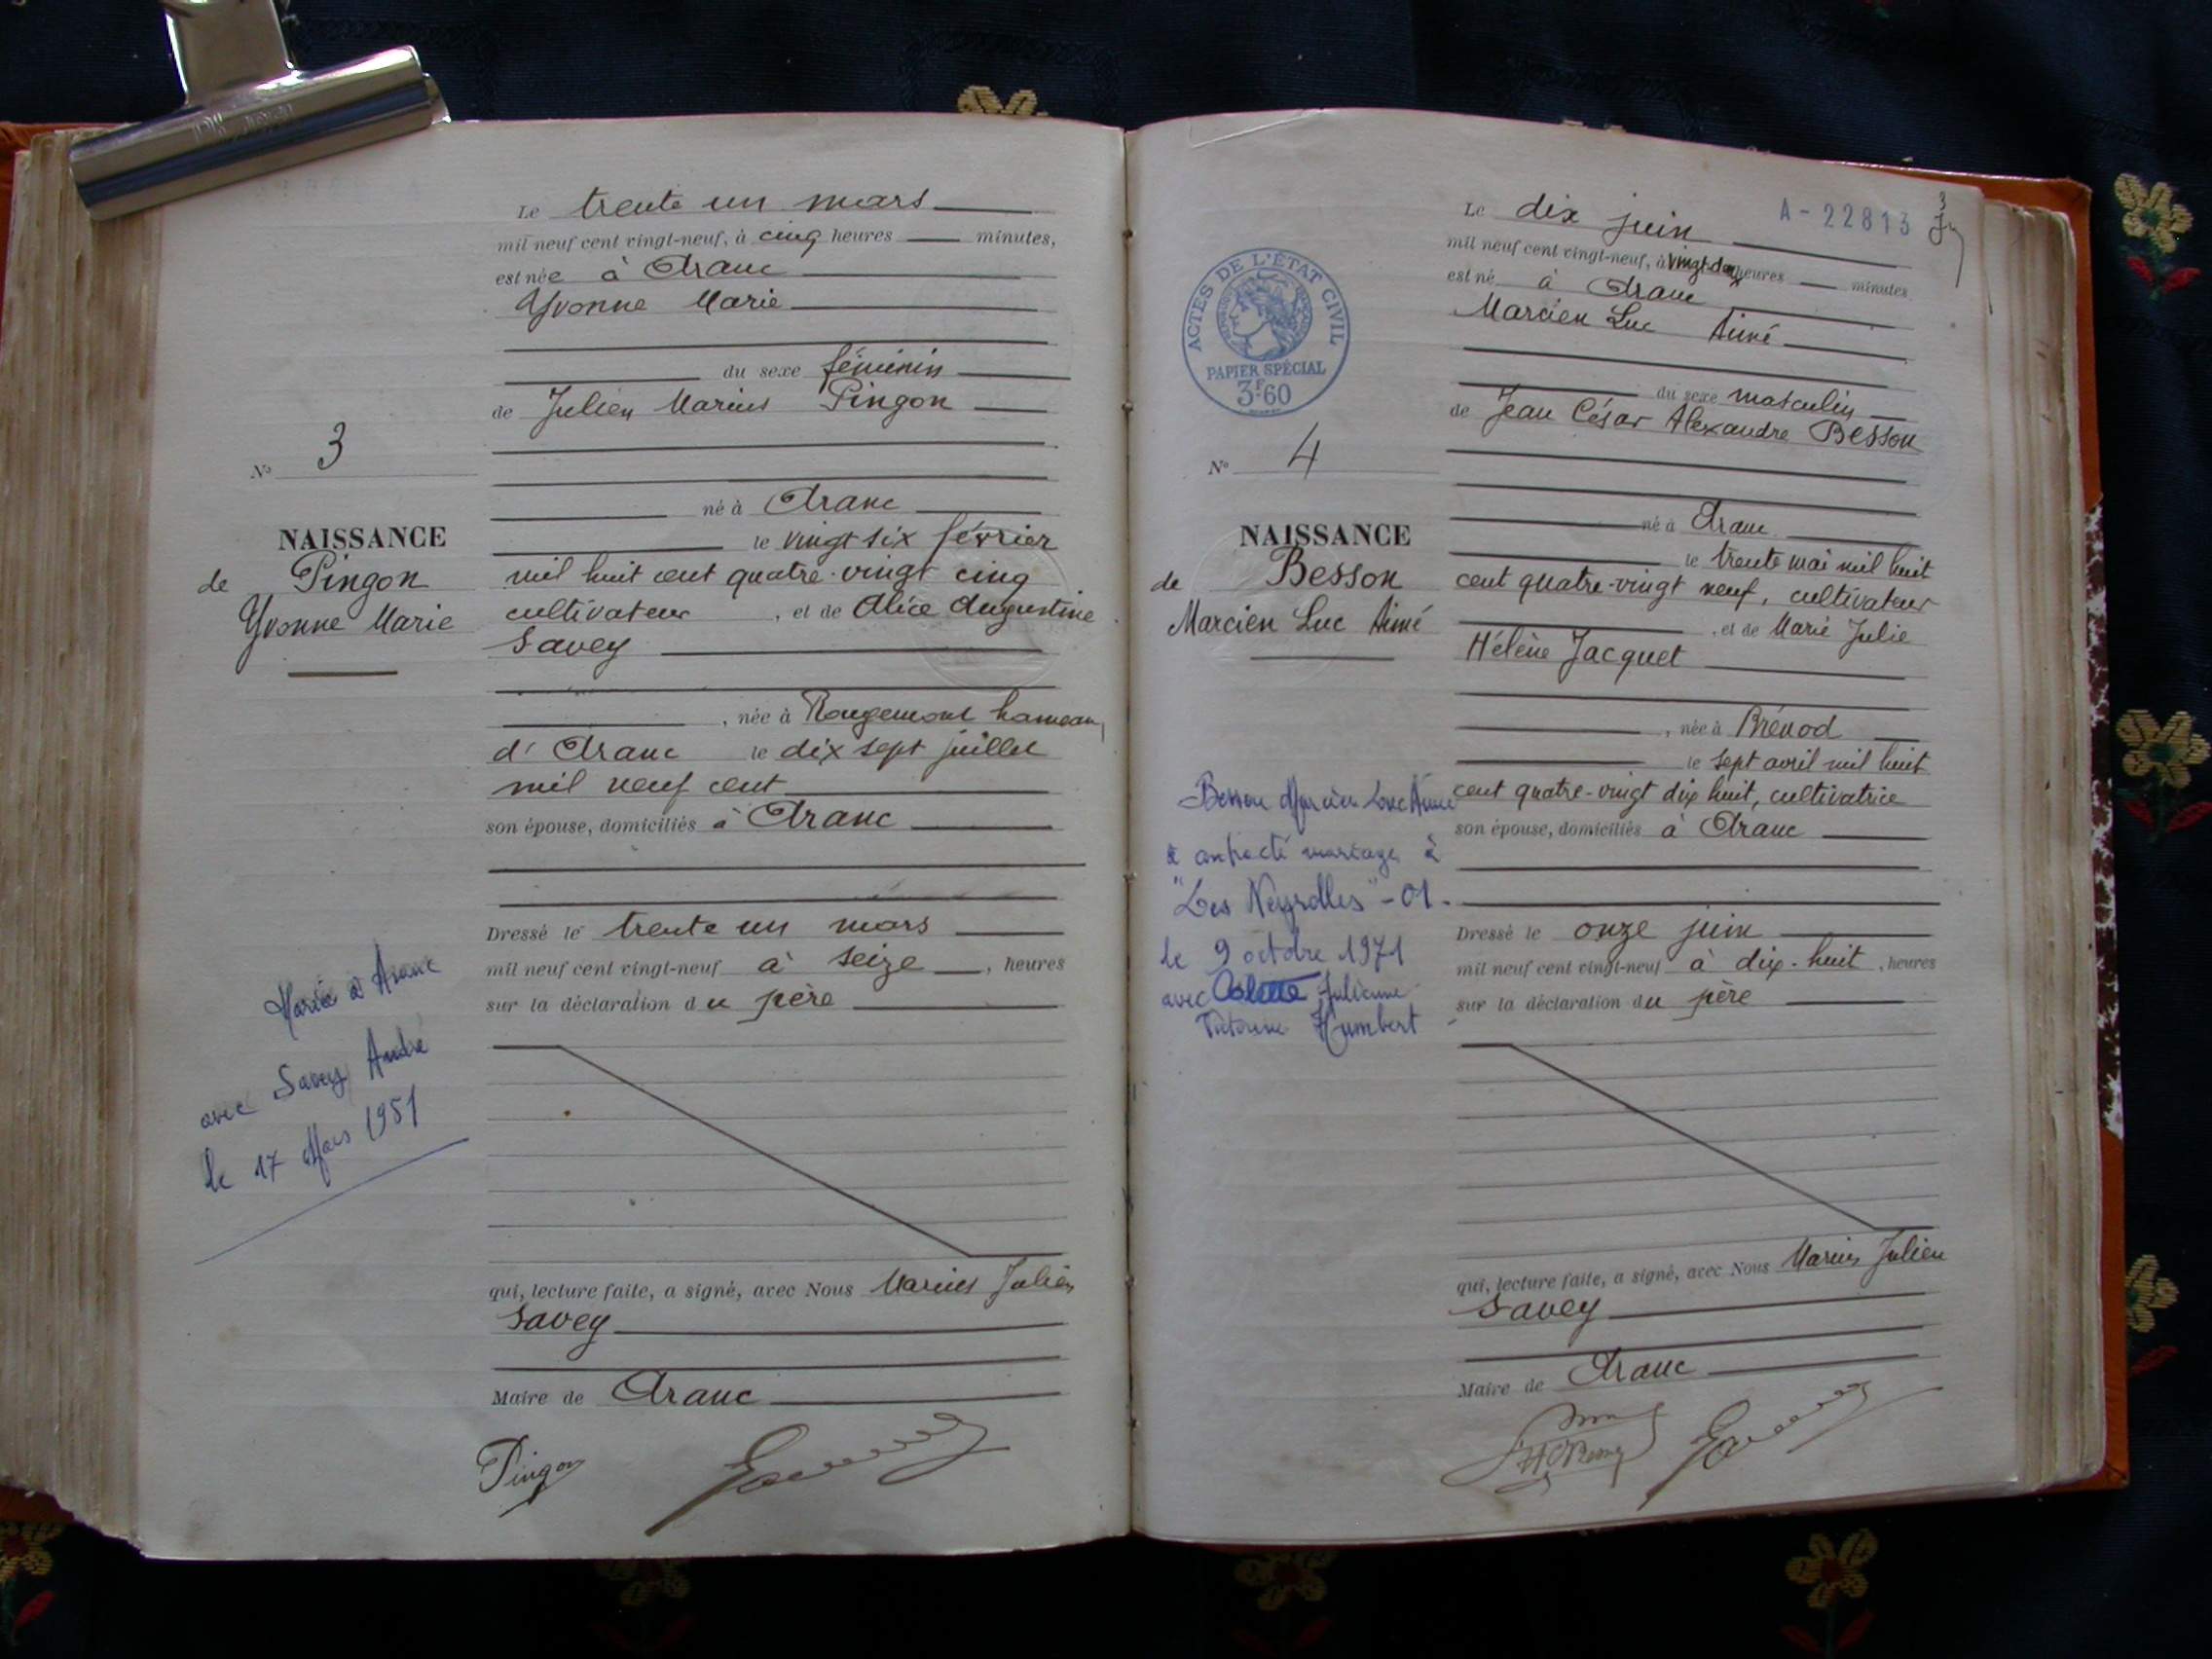 Le trente un mars
mil neuf cent vingt-neuf, à cinq heures minutes,
est née à Aranc
Yvonne Marie
du sexe féminin
de Julien Marius Pingon
né à Aranc
le vingt six février
mil huit cent quatre-vingt cinq
cultivateur , et de Alice Augustine
Savey
, née à Rougemont hameau
d'Aranc le dix sept juillet
mil neuf cent
son épouse, domiciliés à Aranc
Dressé le trente un mars
mil neuf cent vingt-neuf à seize , heures
sur la déclaration du père
qui, lecture faite, a signé, avec Nous Marius Julien
Savey
Maire de Aranc
Pingon
N° 3
NAISSANCE
de Pingon
Yvonne Marie
Mariée à Aranc
avec Savey André
le 17 Mars 1951
A-22813
3
Le dix juin
mil neuf cent vingt-neuf, à vingt-deux heures minutes
est né à Aranc
Marcien Luc Aimé
du sexe masculin
de Jean César Alexandre Besson
né à Aranc
le trente mai mil huit
cent quatre-vingt neuf, cultivateur
, et de Marie Julie
Hélène Jacquet
, née à Brénod
le sept avril mil huit
cent quatre-vingt dix huit, cultivatrice
son épouse, domiciliés à Aranc
Dressé le onze juin
mil neuf cent vingt-neuf à dix-huit , heures
sur la déclaration du père
qui, lecture faite, a signé, avec Nous Marius Julien
Savey
Maire de Aranc
ACTES DE L'ÉTAT CIVIL
PAPIER SPÉCIAL
3F60
N° 4
NAISSANCE
de Besson
Marcien Luc Aimé
Besson Marcien Luc Aimé
a contracté mariage à
"Les Neyrolles" - 01.
le 9 octobre 1971
avec Julienne
Humbert